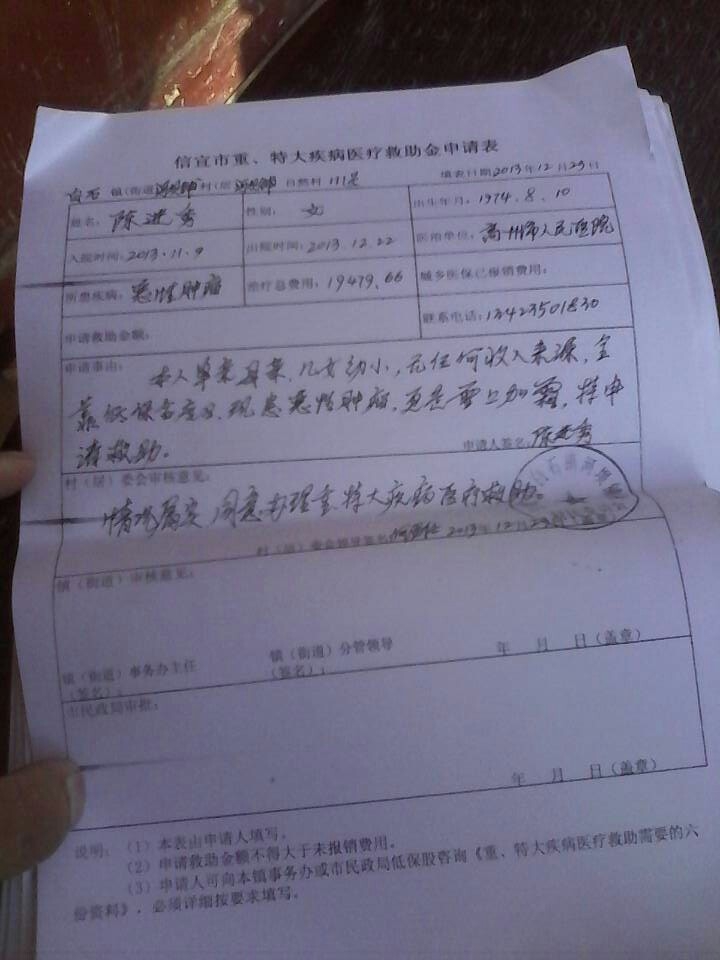 信宜市重、特大疾病医疗救助金申请表
白石 镇(街道 村(居 自然村 111号 填表日期2013年12月23日
姓名:陈进秀 性别: 女 出生年月:1974.8.10
入院时间:2013.11.9 出院时间:2013.12.22 医治单位:高州市人民医院
所患疾病:恶性肿瘤 治疗总费用:19479.66 城乡医保已报销费用:
申请救助金额: 联系电话:13423501830
申请事由: 本人单亲母亲,儿女幼小,无任何收入来源,全
靠低保 度日,现患恶性肿瘤,更是雪上加霜,特申
请救助。 申请人签名:陈进秀
村(居)委会审核意见:
情况属实,同意办理重、特大疾病医疗救助。
村(居)委会领导签名: 2013年12月23日
镇(街道)审核意见:
镇(街道)事务办主任 镇(街道)分管领导 年 月 日(盖章)
(签名): (签名):
市民政局审批:
年 月 日(盖章)
说明:(1)本表由申请人填写。
(2)申请救助金额不得大于未报销费用。
(3)申请人可向本镇事务办或市民政局低保股咨询《重、特大疾病医疗救助需要的六
份资料》,必须详细按要求填写。